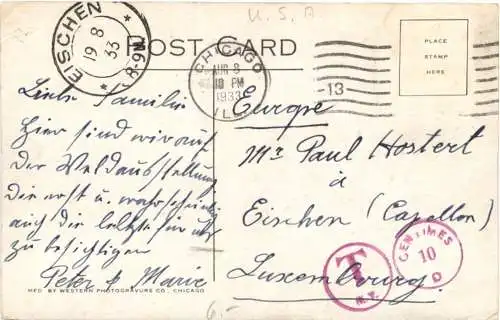 U.S.A
EISCHEN
19 8
33
POST CARD
CHICAGO
AUG 8
10 PM
1933
ILL.
-13
PLACE
STAMP
HERE
Liebe Familie
Hier sind wir auf
der Weldausstellung
die erst u. wahrscheinlich
auch die letzte für uns
zu besichtigen
Peter & Marie
Europe
Mr Paul Hostert
à
Eischen (Capellen)
Luxembourg
T
N.Y.
CENTIMES
10
MFD BY WESTERN PHOTOGRAVURE CO., CHICAGO
6.-